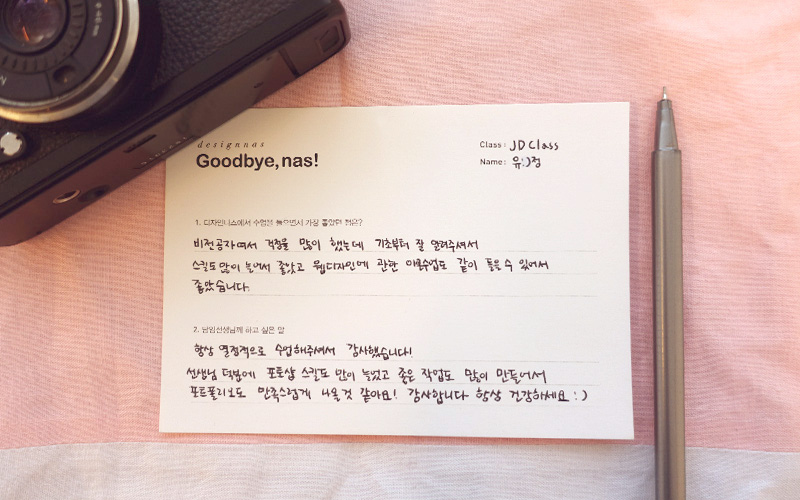 designnas
Goodbye, nas!
Class : JD Class
Name : 유:)정
1. 디자인나스에서 수업을 들으면서 가장 좋았던 점은?
비전공자여서 걱정을 많이 했는데 기초부터 잘 알려주셔서
스킬도 많이 늘어서 좋았고 웹디자인에 관한 이론수업도 같이 들을 수 있어서
좋았습니다.
2. 담임선생님께 하고 싶은 말
항상 열정적으로 수업해주셔서 감사했습니다!
선생님 덕분에 포토샵 스킬도 많이 늘었고 좋은 작업도 많이 만들어서
포트폴리오도 만족스럽게 나올것 같아요! 감사합니다 항상 건강하세요 : )